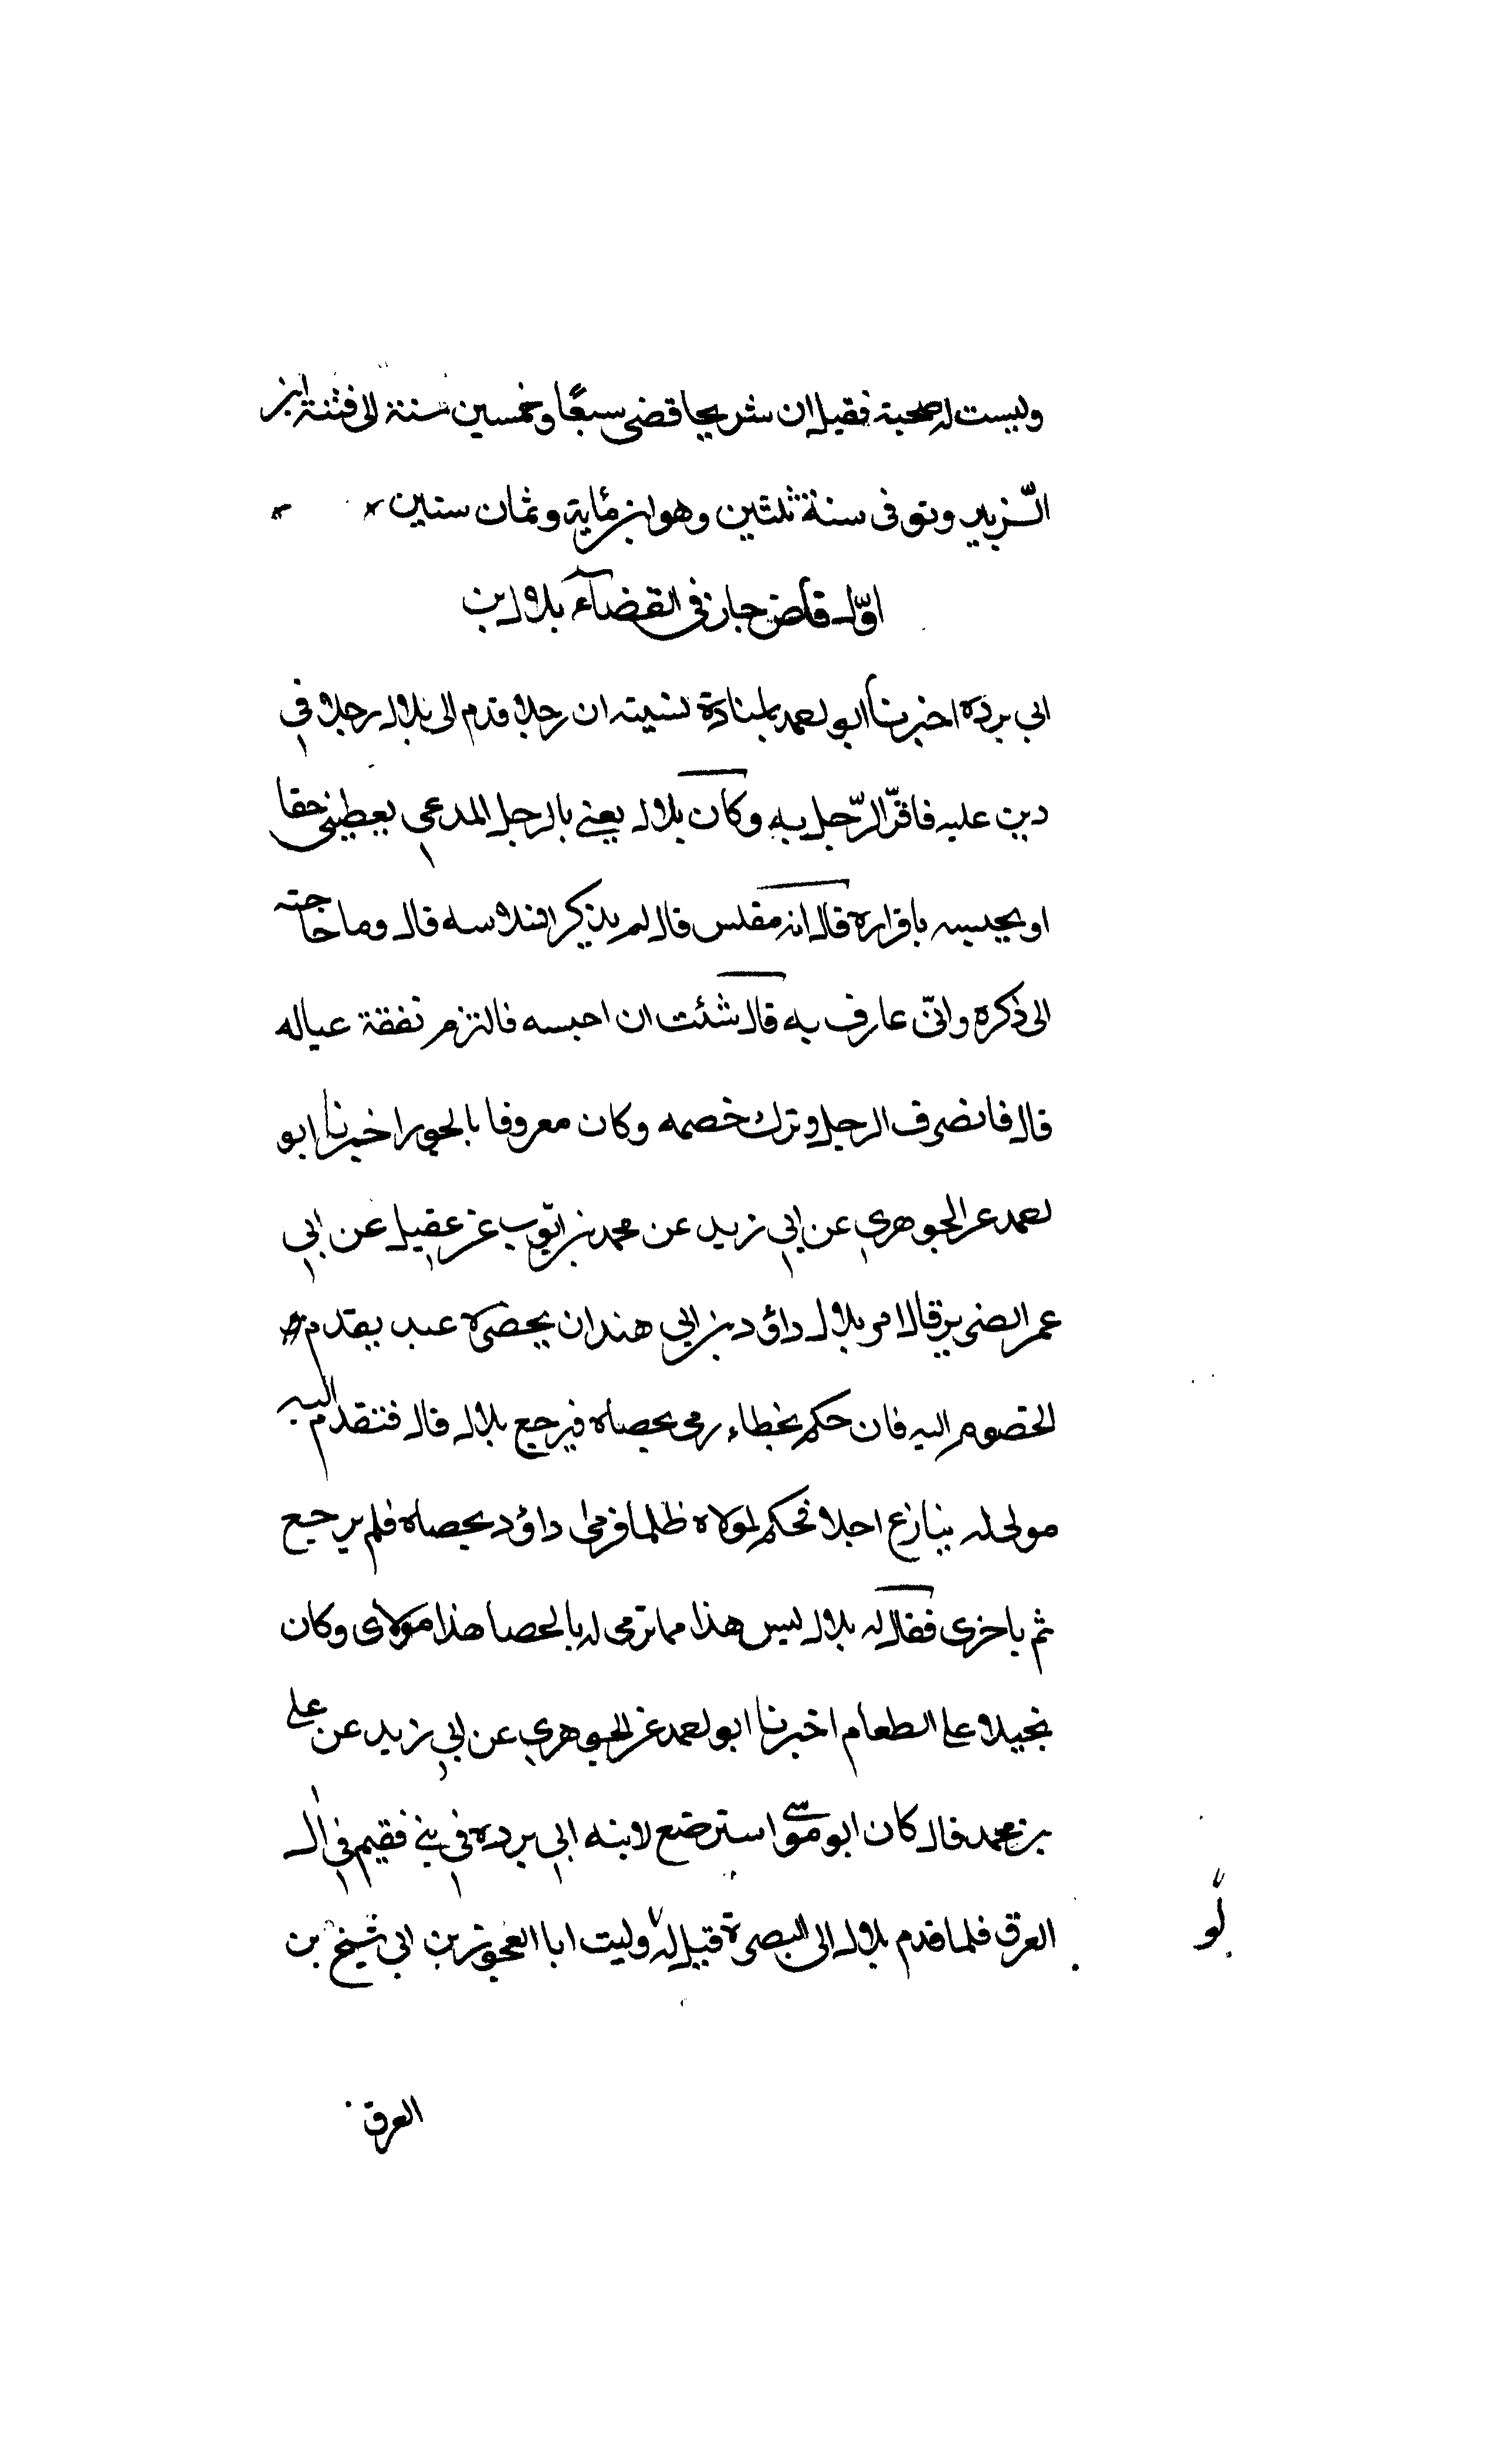 وليست له صحبة فقيل ان شريحا قضى سبعًا وخمسين سنة الى فتنة ابن
الزّبير وتوفى سنة ثلثين وهو ابن مُاية وثمان سنين
اوّل قاض جار فى القضآء بلال بن
ابى برده اخبرنا ابو لعمد باسناده نسيته ان رجلا قدم الى بلال رجلا فى
دين عليه فاقرّ الرّجل به وكان بلال يعنى بالرجل المدعى يعطينى حقا
او يحبسه باقراره قال انه مفلس قال لم يذكر افلاسه قال وما حاجته
الى ذكره وانّى عارف به قال شئت ان احبسه فالتزم نفقة عياله
قال فانصرف الرجل وترك خصمه وكان معروفا بالجور اخبرنا ابو
لعمد عن الجوهرى عن ابى زيد عن محمد بن ايّوب عن عقيل عن ابى
عمر الضرير قال امر بلال داؤد بن ابى هند ان يحضره عند يقدم
الخصوم اليه فان حكم بخطاء رمى بحصاه فيرجع بلال قال فتقدم اليه
مولى له ينازع احلا فحكم لمولاه ظلما فرمى داؤد بحصاه فلم يرجع
ثم باخرى فقال له بلال ليس هذا مما ترمى له بالحصا هذا مولاى وكان
بخيلا على الطعام اخبرنا ابو لعمد عن الجوهرى عن ابى زيد عن على
بن محمد قال كان ابو موسى استرضع لابنه ابى برده فى بنى فقيم فى ال
العرق فلما قدم بلال الى البصرة قيل له لو وليت ابا العجوز بن ابى شيخ بن
لو
العرق